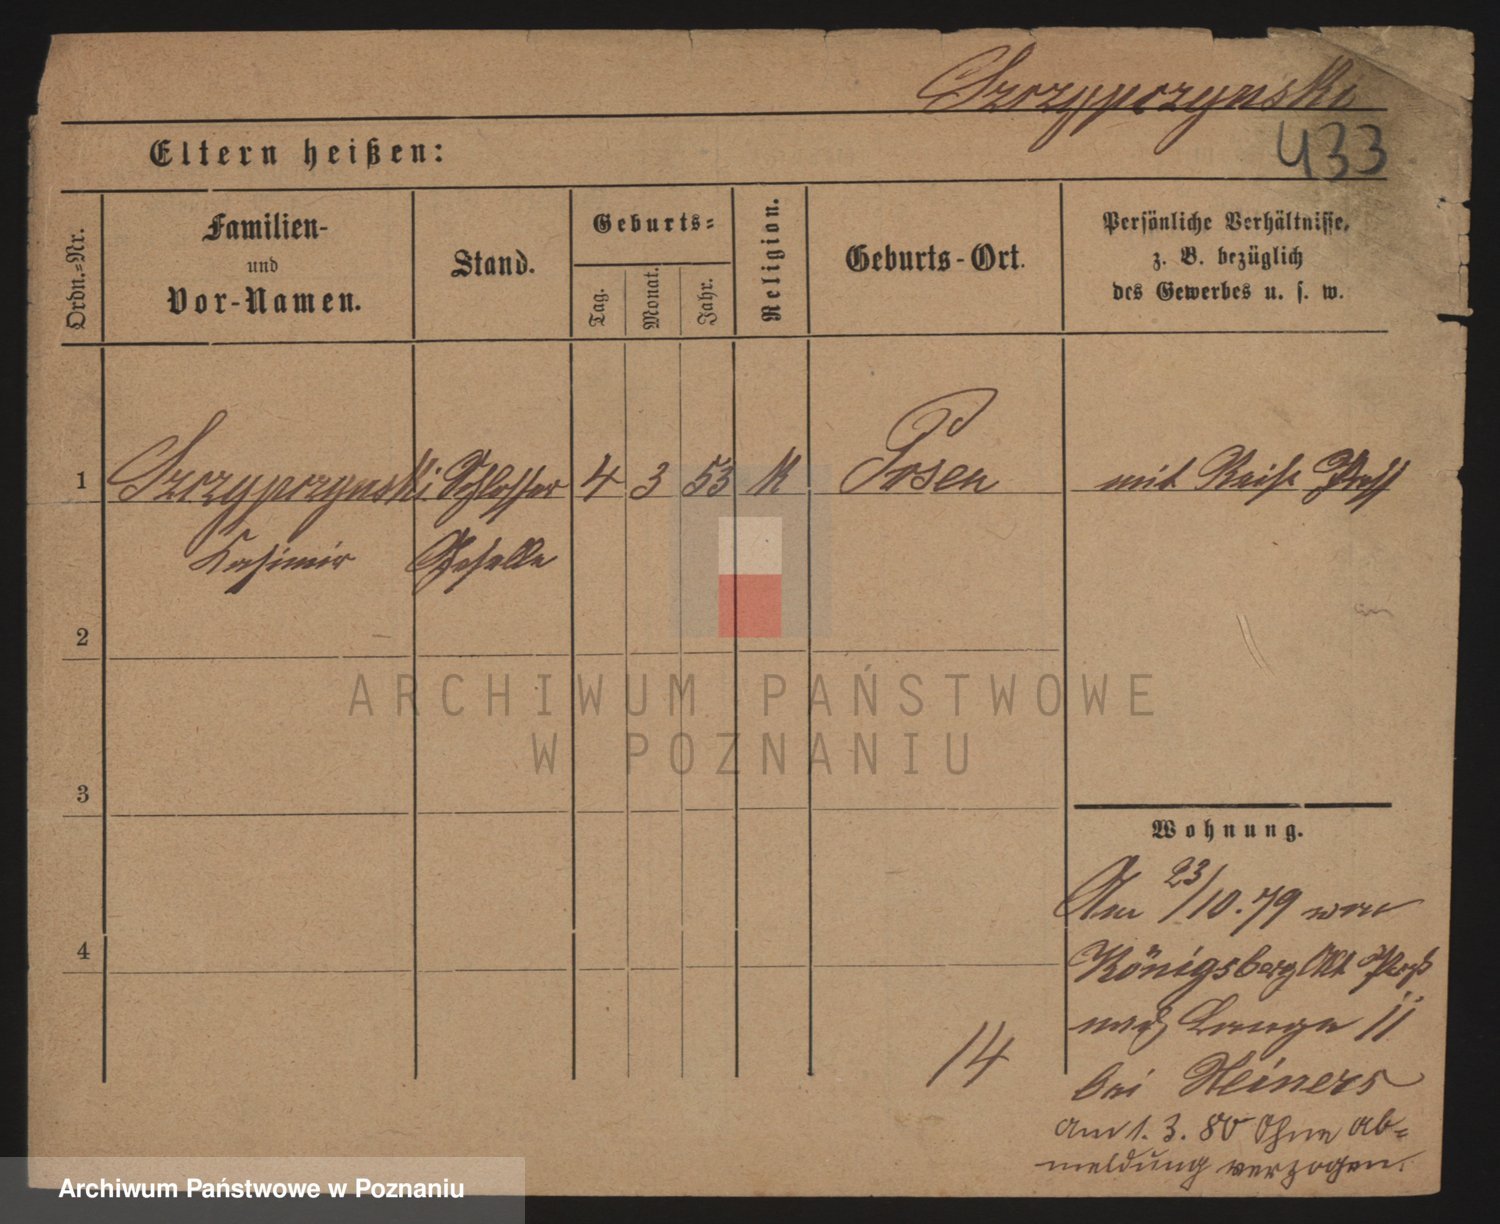 Szczypczynski
433
Eltern heißen:
Ordn.=Nr.
Familien-
und
Vor-Namen.
Stand.
Geburts=
Tag.
Monat.
Jahr.
Religion.
Geburts-Ort.
Persönliche Verhältnisse,
z. B. bezüglich
des Gewerbes u. s. w.
1 Szczypczynski Schlosser 4 3 53 K Posen mit Reise Paß
Kasimir Geselle
2
ARCHIWUM PAŃSTWOWE
W POZNANIU
3
4
14
Wohnung.
Am 23/10.79 von
Königsberg
nach Lange 11
bei Meiners
am 1. 3. 80 Ohne Ab=
meldung verzogen.
Archiwum Państwowe w Poznaniu